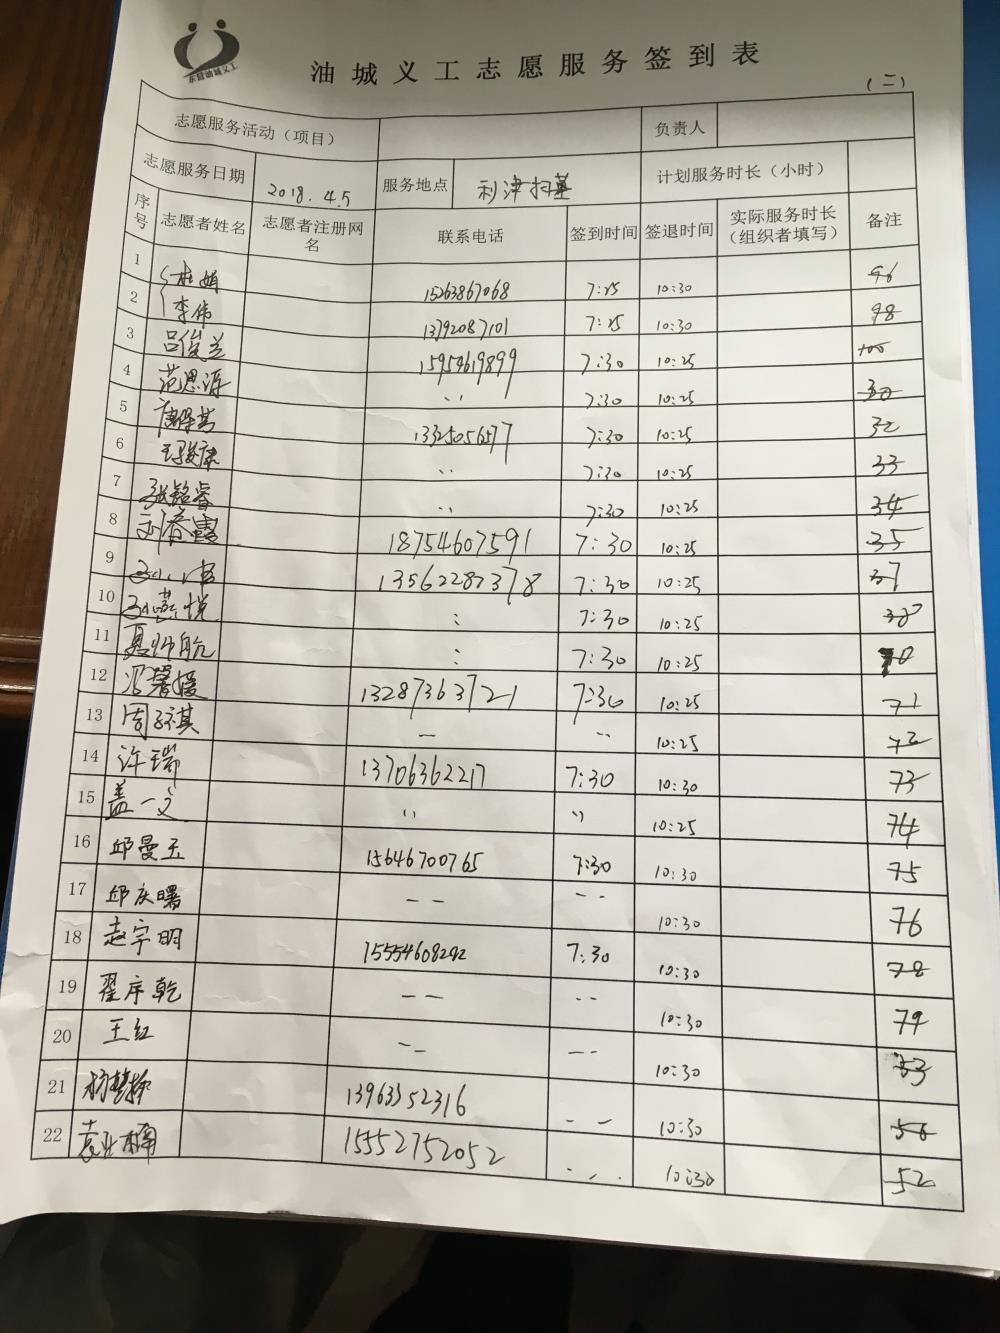 东营油城义工
油城义工志愿服务签到表
（二）
志愿服务活动（项目） 负责人
志愿服务日期 2018.4.5 服务地点 利津扫墓 计划服务时长（小时）
序号 志愿者姓名 志愿者注册网名 联系电话 签到时间 签退时间 实际服务时长（组织者填写） 备注
1 杜娟 15263867068 7:25 10:30 96
2 李伟 13792087101 7:25 10:30 98
3 吕俊兰 15954619899 7:30 10:25 100
4 范思源 ,, 7:30 10:25 30
5 13325056577 7:30 10:25 32
6 王骏康 ,, 7:30 10:25 33
7 张铭睿 ,, 7:30 10:25 34
8 18754607591 7:30 10:25 35
9 13562282378 7:30 10:25 37
10 : 7:30 10:25 38
11 聂师航 : 7:30 10:25 70
12 冯馨嫒 13287363721 7:30 10:25 71
13 周子祺 — ,, 10:25 72
14 许瑞 13706362217 7:30 10:30 73
15 盖一文 ,, ,, 10:25 74
16 邱曼玉 15646700765 7:30 10:30 75
17 邱庆曙 -- -- 10:30 76
18 赵宇明 15554608242 7:30 10:30 78
19 翟序乾 -- -- 10:30 79
20 王红 -- -- 10:30 53
21 13963352316 -- 10:30 56
22 袁业楠 15552752052 -- 10:30 52